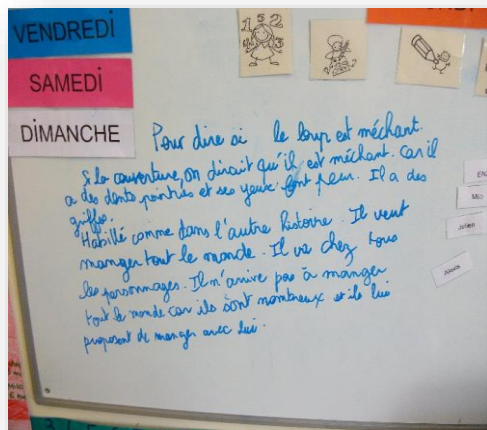 VENDREDI
SAMEDI
DIMANCHE
1 5 2
Pour dire si le loup est méchant.
Si la couverture, on dirait qu'il est méchant. Car il
a des dents pointues et ses yeux font peur. Il a des
griffes.
Habillé comme dans l'autre histoire. Il veut
manger tout le monde. Il va chez tous
les personnages. Il n'arrive pas à manger
tout le monde car ils sont nombreux et ils lui
proposent de manger avec lui.
Julien